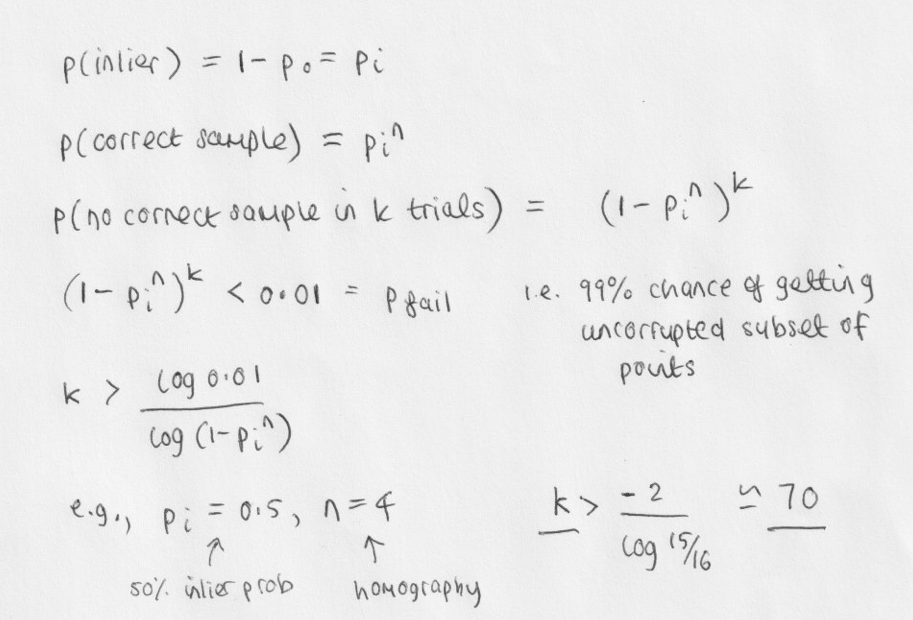 p(inlier) = 1 - p₀ = pᵢ
p(correct sample) = pᵢⁿ
p(no correct sample in k trials) = (1 - pᵢⁿ)ᵏ
(1 - pᵢⁿ)ᵏ < 0.01 = pfail i.e. 99% chance of getting
uncorrupted subset of
points
k > log 0.01 / log (1 - pᵢⁿ)
e.g., pᵢ = 0.5, n = 4 k > -2 / log 15/16 ≃ 70
↑ ↑
50% inlier prob homography